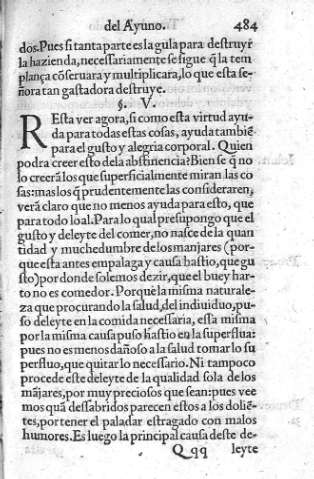 del Ayuno. 484
dos. Pues si tanta parte es la gula para destruyr
la hazienda, necessariamente se sigue q̃ la tem
plança cõseruara y multiplicara, lo que esta se-
ñora tan gastadora destruye.
§. V.
REsta ver agora, si como esta virtud ayu-
da para todas estas cosas, ayuda tambiẽ
para el gusto y alegria corporal. Quien
podra creer esto dela abstinencia? Bien se q̃ no
lo creerá los que superficialmente miran las co
sas: mas los q̃ prudentemente las consideraren,
verá claro que no menos ayuda para esto, que
para todo loal. Para lo qual presupongo que el
gusto y deleyte del comer, no nasce de la quan
tidad y muchedumbre de los manjares (por-
que esta antes empalaga y causa hastio, que gu
sto) por donde solemos dezir, que el buey har-
to no es comedor. Porque la misma naturale-
za que procurando la salud, del indiuiduo, pu-
so deleyte en la comida necessaria, essa misma
por la misma causa puso hastio en la superflua:
pues no es menos dañoso a la salud tomar lo su
perfluo, que quitar lo necessario. Ni tampoco
procede este deleyte de la qualidad sola de los
mãjares, por muy preciosos que sean: pues vee
mos quã dessabridos parecen estos a los doliẽ-
tes, por tener el paladar estragado con malos
humores. Es luego la principal causa deste de-
Qqq leyte